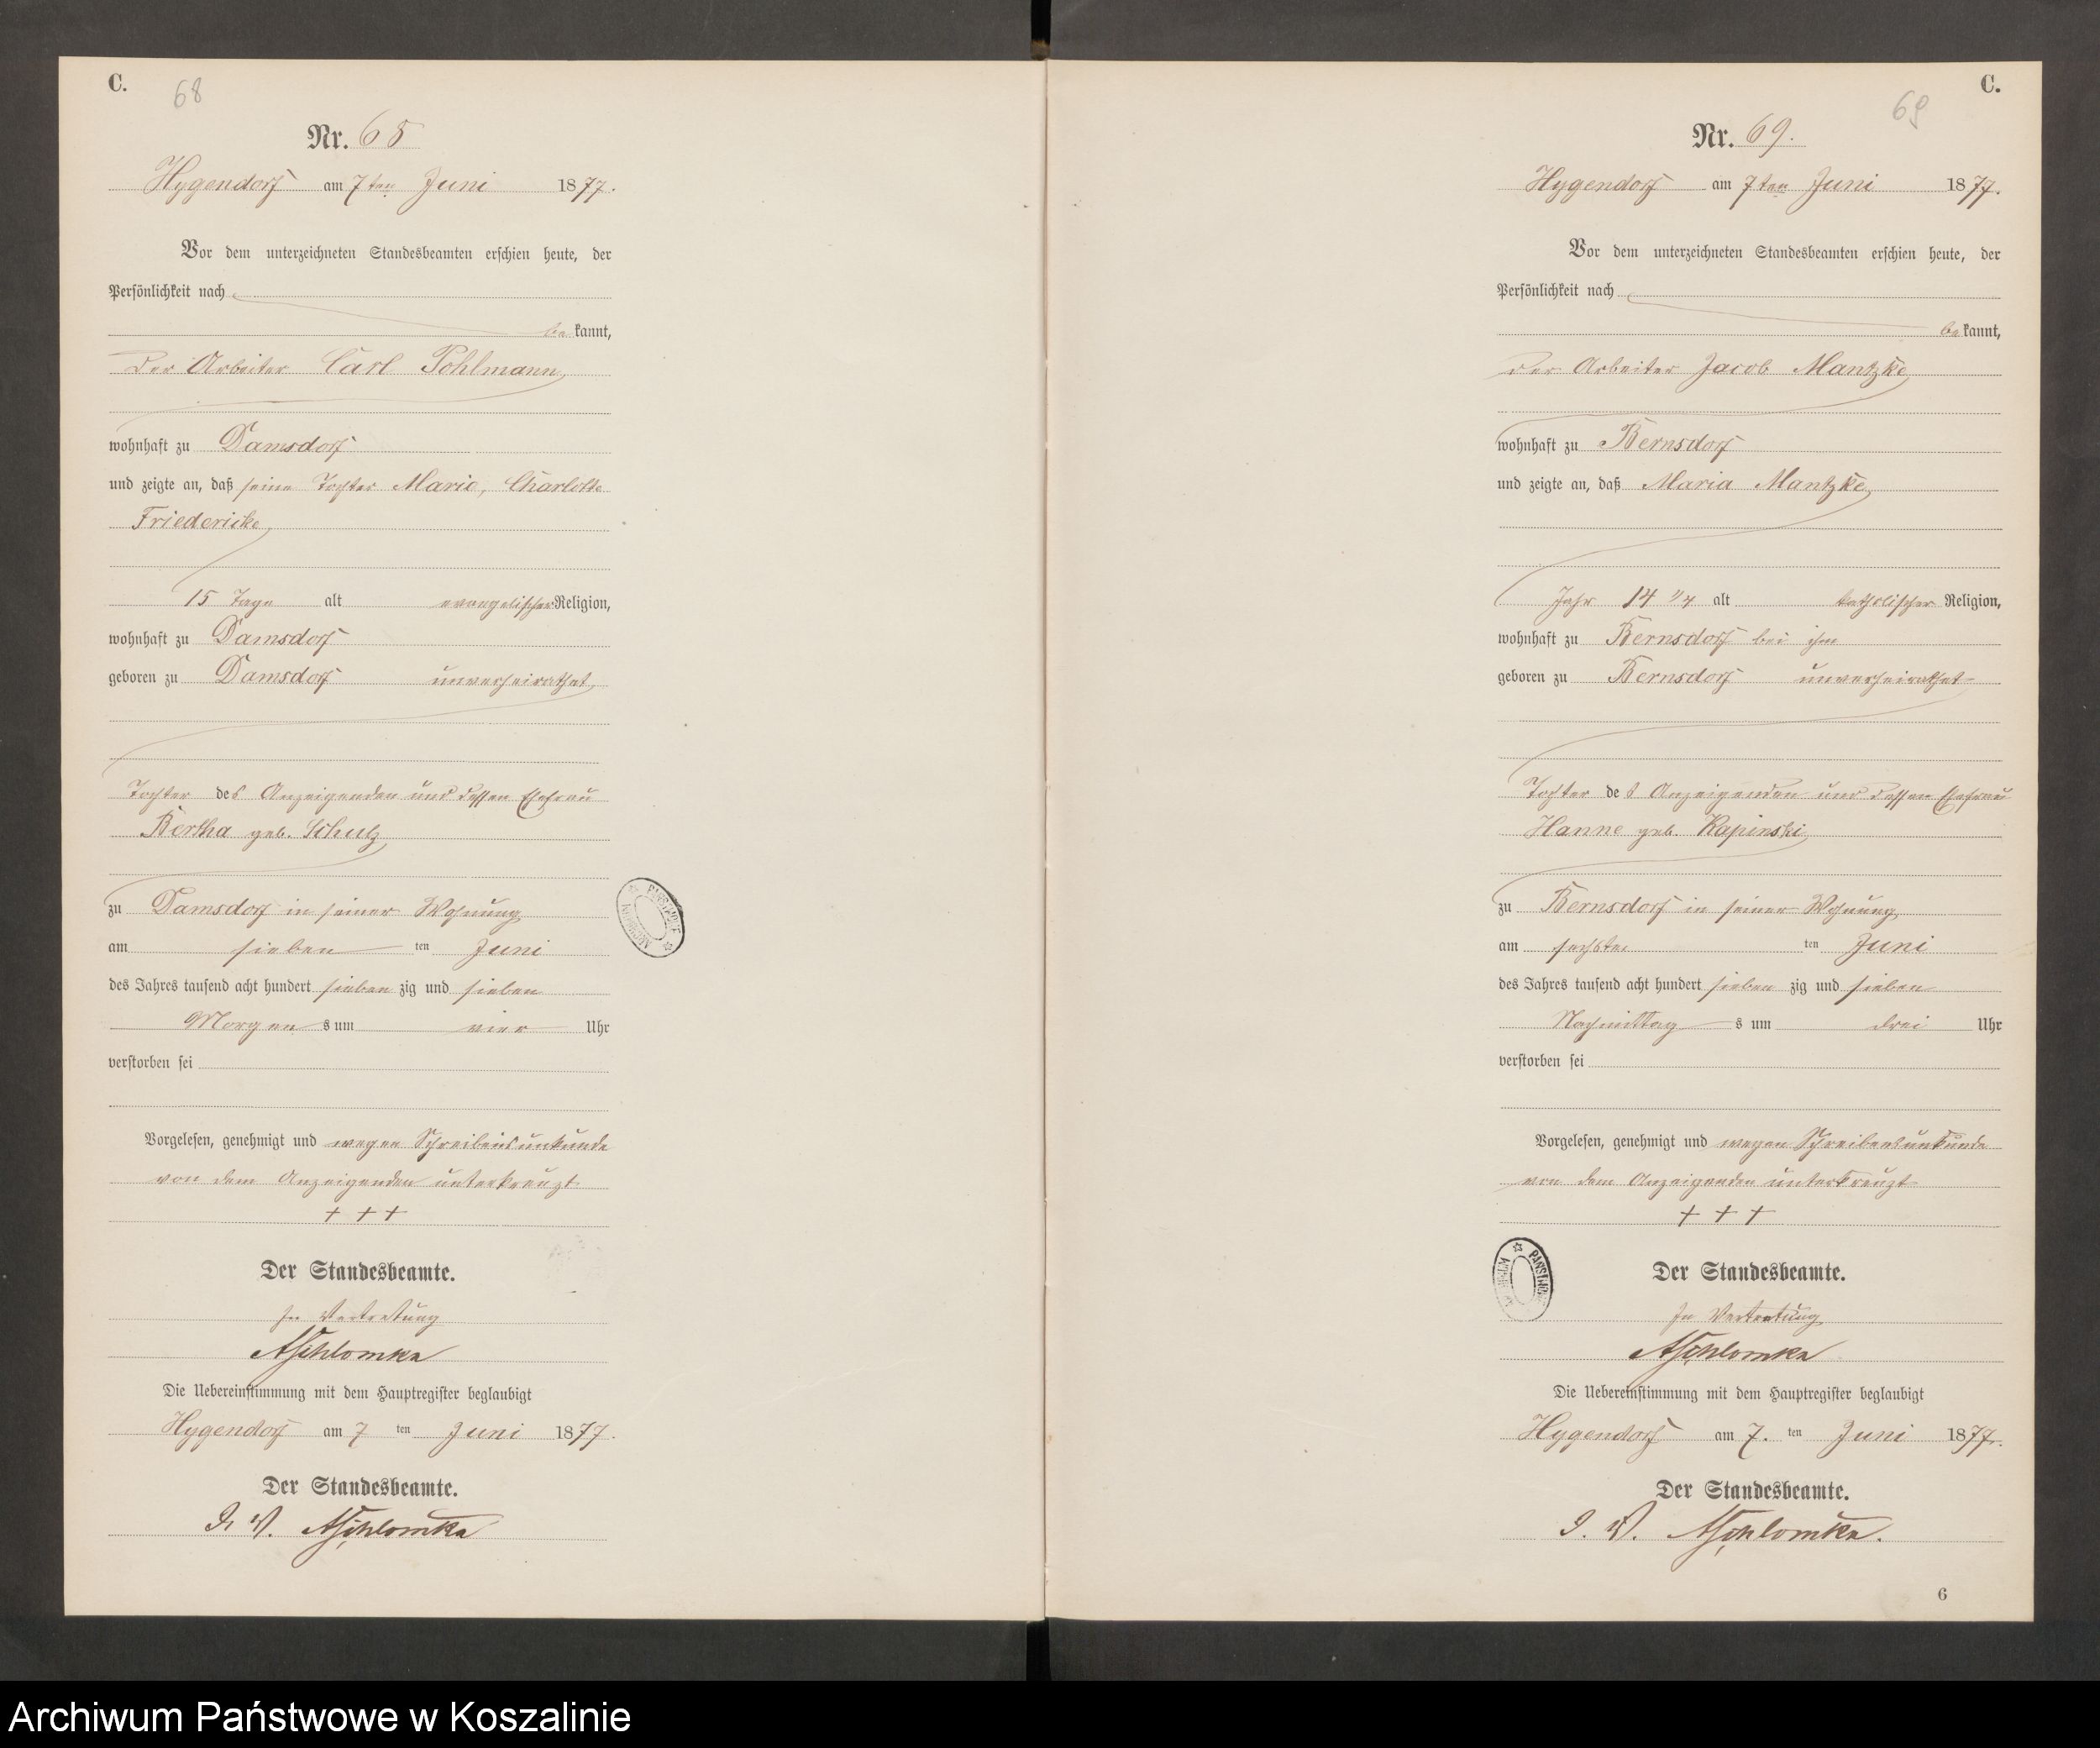 C.
68
Nr. 68
Hygendorf am 7ten Juni 1877.
Vor dem unterzeichneten Standesbeamten erschien heute, der
Persönlichkeit nach
be kannt,
der Arbeiter Carl Pohlmann
wohnhaft zu Damsdorf
und zeigte an, daß seine Tochter Marie, Charlotte
Friedericke
15 Tage alt evangelischer Religion,
wohnhaft zu Damsdorf
geboren zu Damsdorf unverheirathet
Tochter des Anzeigenden und dessen Ehefrau
Bertha geb. Schulz
zu Damsdorf in seiner Wohnung
am sieben ten Juni
des Jahres tausend acht hundert sieben zig und sieben
Morgen s um vier Uhr
verstorben sei
Vorgelesen, genehmigt und wegen Schreibensunkunde
von dem Anzeigenden unterkreuzt
+ + +
Der Standesbeamte.
In Vertretung
ASchlomka
Die Uebereinstimmung mit dem Hauptregister beglaubigt
Hygendorf am 7 ten Juni 1877.
Der Standesbeamte.
I. V. ASchlomka
ARCHIWUM PAŃSTWOWE
C.
69
Nr. 69.
Hygendorf am 7ten Juni 1877.
Vor dem unterzeichneten Standesbeamten erschien heute, der
Persönlichkeit nach
be kannt,
der Arbeiter Jacob Mantzke
wohnhaft zu Bernsdorf
und zeigte an, daß Maria Mantzke
Jahr 14 1/4 alt katholischer Religion,
wohnhaft zu Bernsdorf bei ihm
geboren zu Bernsdorf unverheirathet
Tochter des Anzeigenden und dessen Ehefrau
Hanne geb. Kapinski
zu Bernsdorf in seiner Wohnung
am sechste ten Juni
des Jahres tausend acht hundert sieben zig und sieben
Nachmittag s um drei Uhr
verstorben sei
Vorgelesen, genehmigt und wegen Schreibensunkunde
von dem Anzeigenden unterkreuzt
+ + +
Der Standesbeamte.
In Vertretung
ASchlomka
Die Uebereinstimmung mit dem Hauptregister beglaubigt
Hygendorf am 7. ten Juni 1877.
Der Standesbeamte.
I. V. ASchlomka.
ARCHIWUM PAŃSTWOWE
6
Archiwum Państwowe w Koszalinie